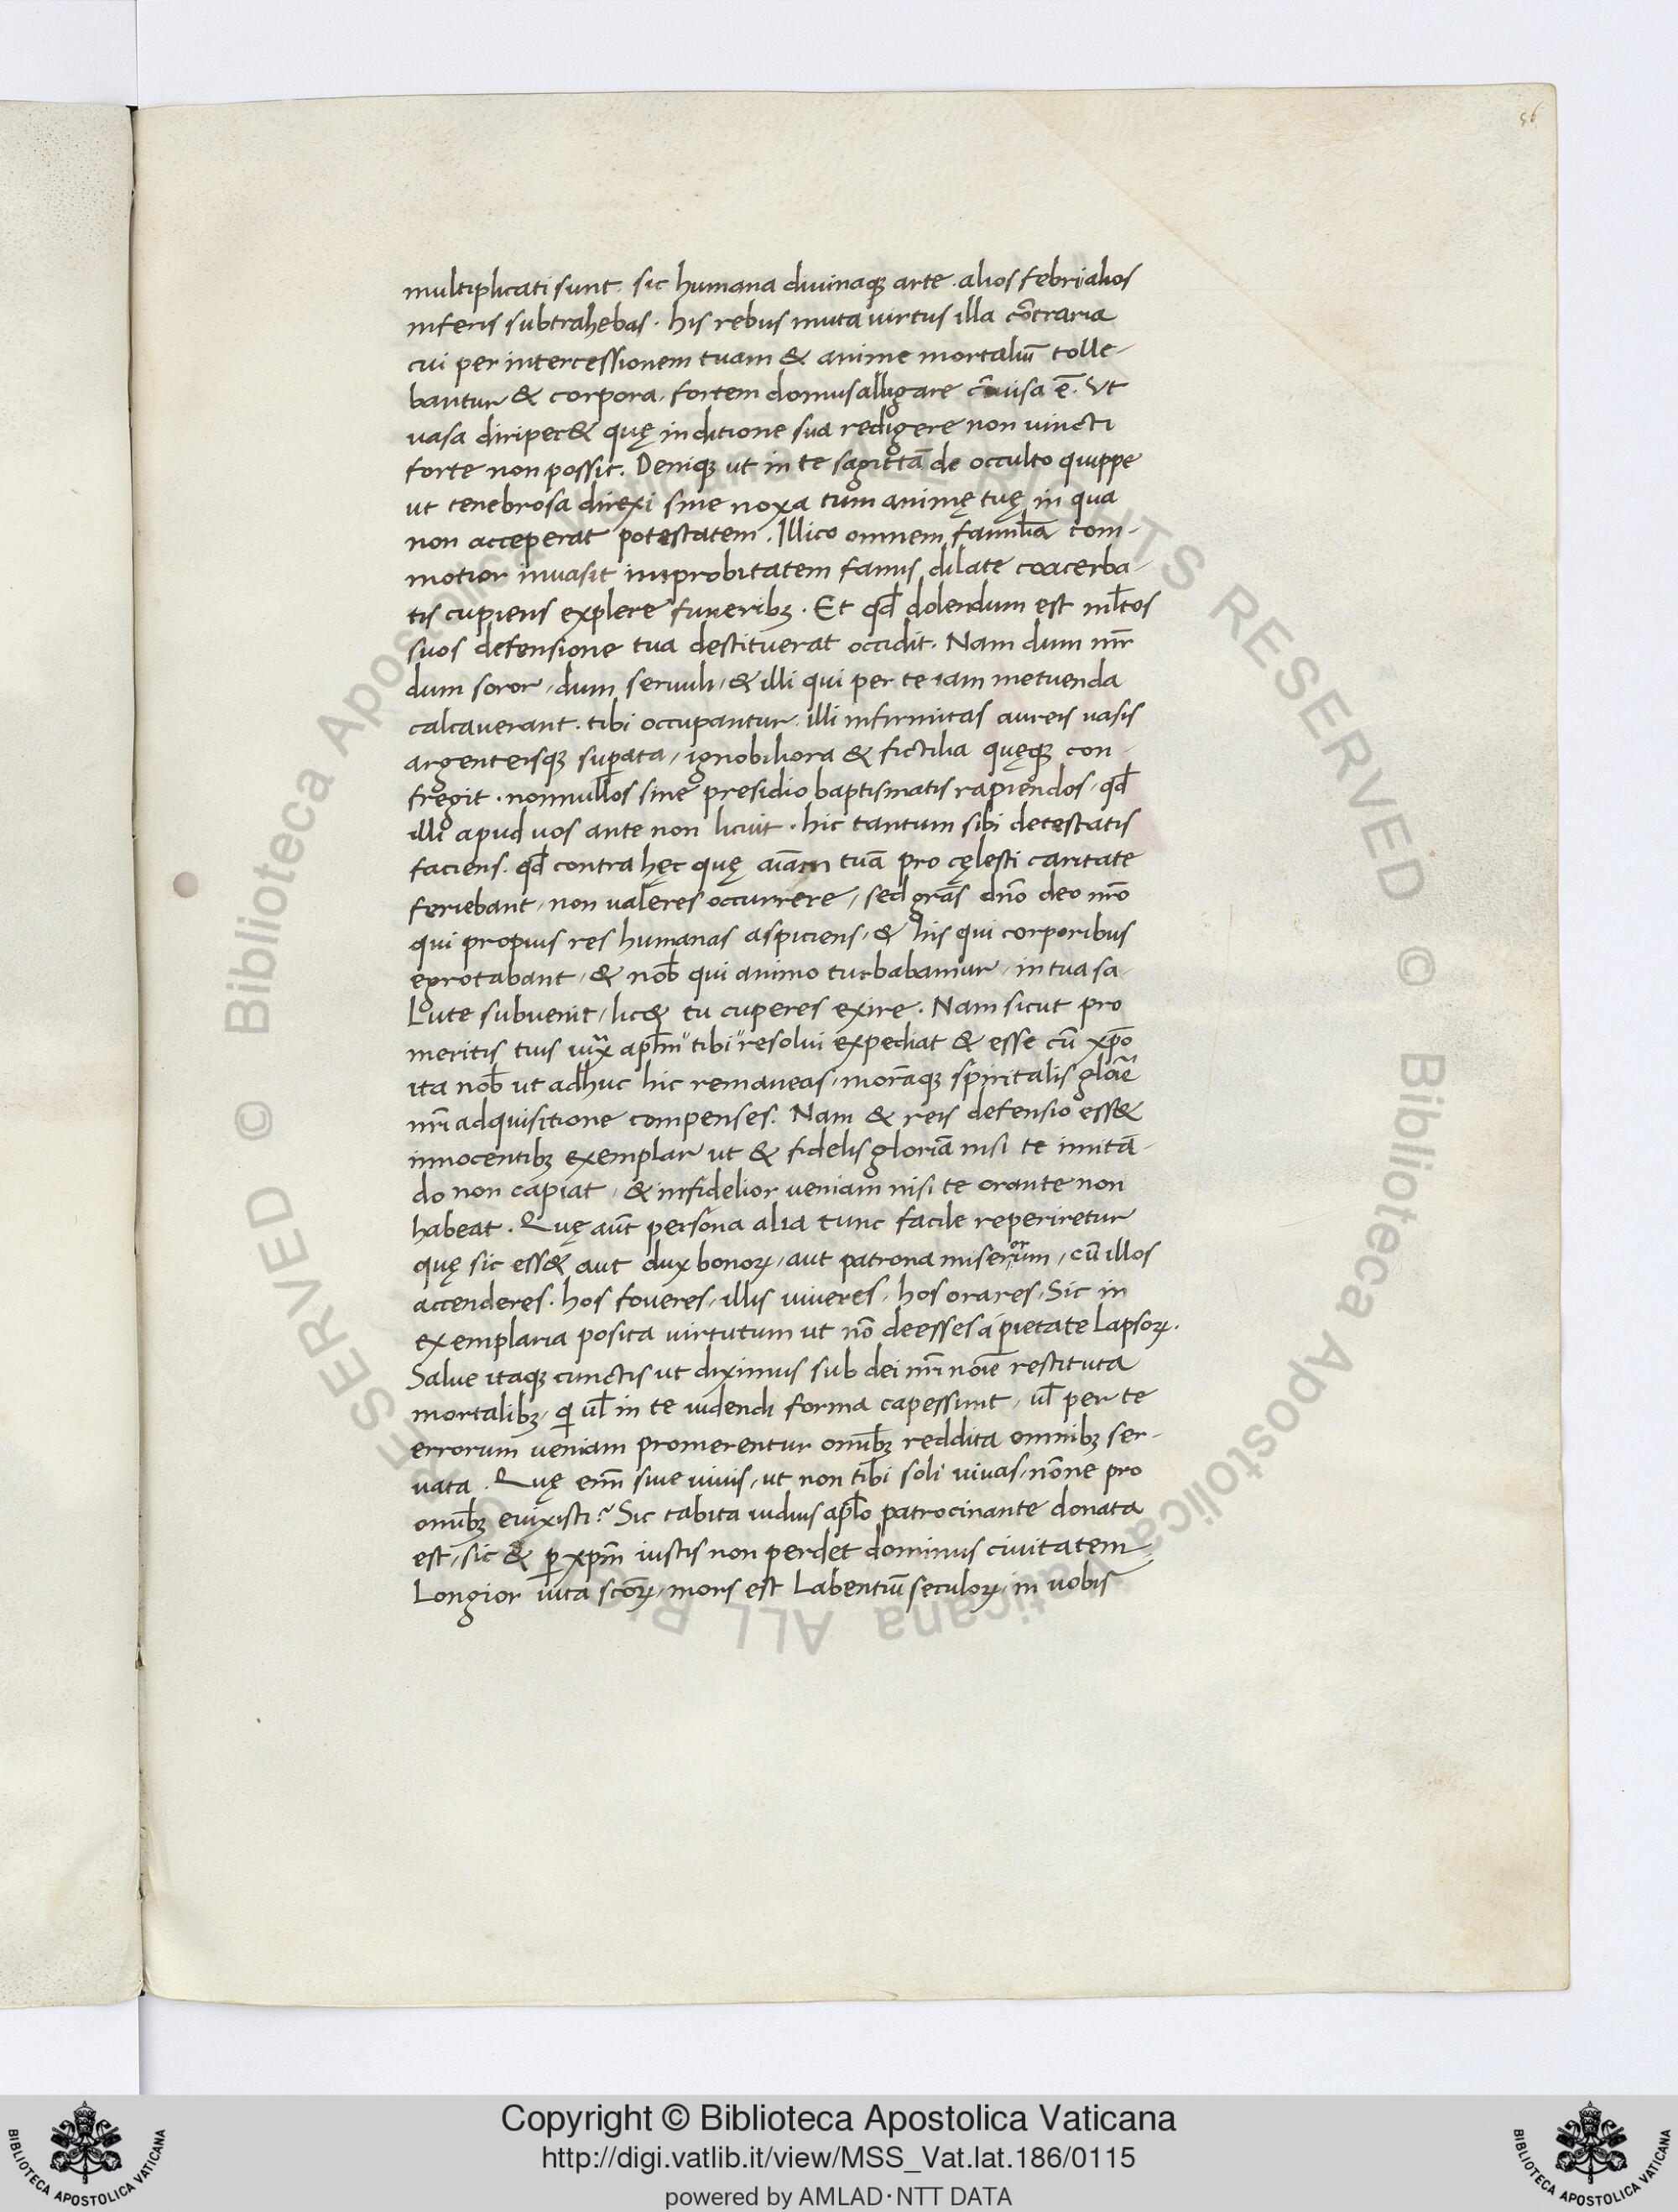 56
multiplicati sunt. sic humana diuinaqꝫ arte. alios febri alios
inferis subtrahebas. his rebus inuita uirtus illa cõtraria
cui per intercessionem tuam & anime mortaliũ tolle-
bantur & corpora. fortem domus alligare cõuisa ẽ. Ut
uasa diriper& quę inditione sua redigere non uincti
forte non possit. Deniqꝫ ut in te sagittã de occulto quippe
ut tenebrosa direxi sine noxa tum animę tuę in qua
non acceperat potestatem. Illico omnem familiã com-
motior inuasit improbitatem famis dilate coacerba-
tis cupiens explere funeribꝫ. Et qđ dolendum est ml̃tos
suos defensione tua destituerat occidit. Nam dum mr̃
dum soror, dum seruuli, & illi qui per te iam metuenda
calcauerant. tibi occupantur. illi infirmitas aureis uasis
argenteisqꝫ suꝑata, ignobiliora & fictilia quęqꝫ con-
fregit. nonnullos sine presidio baptismatis rapiendos, qđ
illi apud uos ante non licuit. hic tantum sibi detestatis
faciens. qđ contra hęc quę aiãm tuã pro cęlesti caritate
feriebant, non ualeres occurrere, sed grãs dño deo nr̃o
qui propius res humanas aspiciens, & his qui corporibus
egrotabant, & nob̃ qui animo turbabamur, in tua sa-
lute subuenit, lic& tu cuperes exire. Nam sicut pro
meritis tuis iuxͣ apl̃m tibi resolui expediat & esse cũ xp̃o
ita nob̃ ut adhuc hic remaneas, morãqꝫ spiritalis glorie
nr̃i adquisitione compenses. Nam & reis defensio ess&
innocentibꝫ exemplar ut & fidelis gloriã nisi te imitã-
do non capiat, & infidelior ueniam nisi te orante non
habeat. Quę aũt persona alia tunc facile reperiretur
quę sic ess& aut dux bonoꝝ, aut patrona miserorum, cũ illos
accenderes. hos foueres, illis uiueres, hos orares, Sic in
exemplaria posita uirtutum ut nõ deesses a pietate lapsoꝝ.
Salue itaqꝫ cunctis ut diximus sub dei nr̃i noĩe restituta
mortalibꝫ, qi ul̃ in te uidendi forma capessunt, ul̃ per te
errorum ueniam promerentur omĩbꝫ reddita omnibꝫ ser-
uata. Quę enĩ siue uiuis, ut non tibi soli uiuas, nõne pro
omĩbꝫ euixisti? Sic tabita uiduis apl̃o patrocinante donata
est, sic & ꝑ xpm̃ iustis non perdet dominus ciuitatem
Longior uita scõꝝ, mors est labentiũ seculoꝝ, in uobis
© Biblioteca Apostolica Vaticana ALL RIGHTS RESERVED © Biblioteca Apostolica Vaticana ALL RIGHTS RESERVED
BIBLIOTECA APOSTOLICA VATICANA
Copyright © Biblioteca Apostolica Vaticana
http://digi.vatlib.it/view/MSS_Vat.lat.186/0115
powered by AMLAD·NTT DATA
BIBLIOTECA APOSTOLICA VATICANA